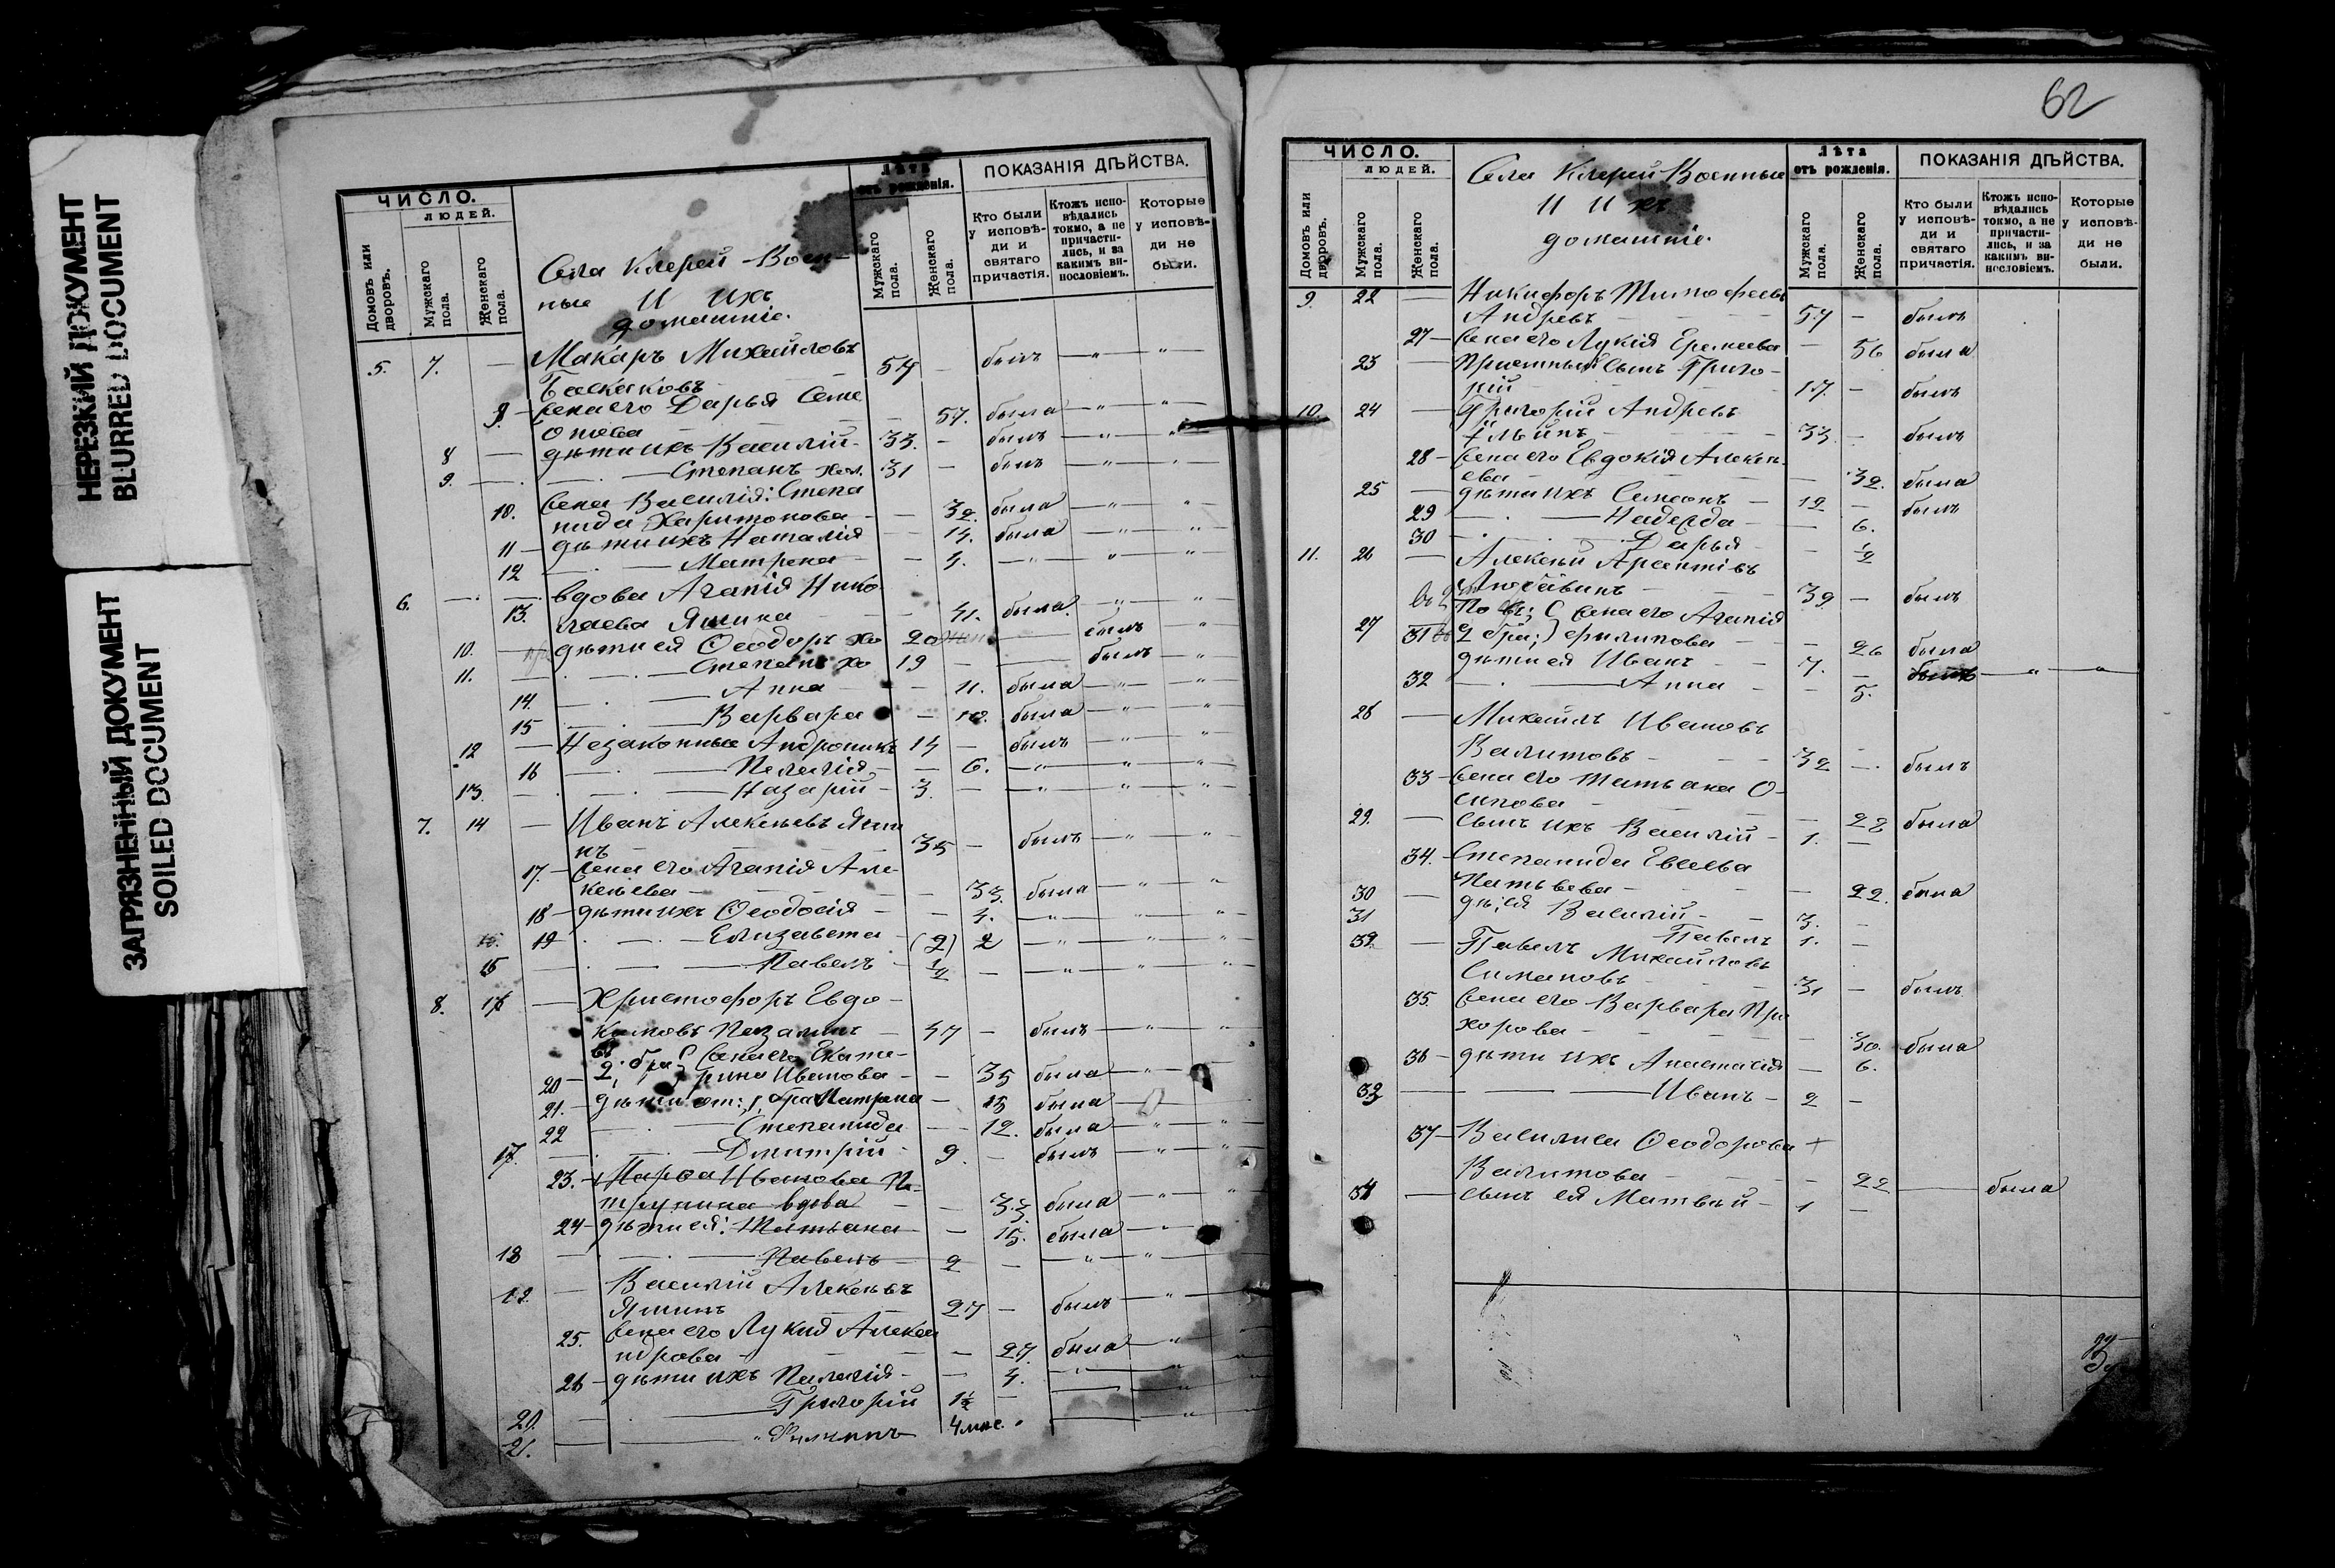 НЕРЕЗКИЙ ДОКУМЕНТ
BLURRED DOCUMENT
ЗАГРЯЗНЕННЫЙ ДОКУМЕНТ
SOILED DOCUMENT
ЧИСЛО.
ЛЮДЕЙ.
Домовъ или дворовъ.
Мужскаго пола.
Женскаго пола.
Села Клерей Воен-
ные И ихъ
домашніе.
Лѣта
отъ рожденія.
Мужскаго пола.
Женскаго пола.
ПОКАЗАНІЯ ДѢЙСТВА.
Кто были у исповѣ-ди и святаго причастія.
Ктожъ испо-вѣдались токмо, а не причасти-лись, и за какимъ ви-нословіемъ.
Которые у исповѣ-ди не были.
5. 7. — Макаръ Михайловъ
Баскаковъ 54 — былъ — " — "
9. — Жена его Дарья Семе
онова — 57. была — " — "
8 — дѣти ихъ Василій 33. — былъ — " — "
9. — Степанъ хол. 31 — былъ — " — "
10. Жена Василія: Степа
нида Харитонова — 32. была — " — "
11 — дѣти ихъ Наталія — 14. была — " — "
12 — Матрена — 4. — " — " — "
6. — вдова Агапія Нико
13. лаева Яшина — 41. была — " — "
10. — дѣти ея Ѳеодоръ хо 20 — былъ "
11. — Степанъ хо 19 — былъ "
14. — Анна — 11. была — " — "
15 — Варвара — 10. была — " — "
12 — Незаконные Андроникъ 14 — былъ — " — "
16 — Пелагія — 6. — " — " — "
13. — Назарій 3. — " — " — "
7. 14 — Иванъ Алексѣевъ Яши
нъ 35 — былъ — " — "
17. — Жена его Агапія Але
ксѣева — 33. была — " — "
18 — дѣти ихъ Ѳеодосія — 4. — " — " — "
19 — Елизавета (2) 2 — " — " — "
15 — Павелъ 1/2 — " — " — "
8. 16 — Христофоръ Евдо-
кимовъ 47 — былъ — " — "
2. бра. Жена его Екате-
20 — рина Иванова — 35 была — "
21. — дѣти от: 1. бра Матрена — 15 была
22 — Степанида — 12. была — " — "
17. — Дмитрій 9. — былъ — " — "
23. — Марѳа Иванова
вдова — 33. была — " — "
24 — дѣти ея: Татьяна — 15. была — "
18 — Павелъ 2 — " — "
19. — Василій Алексѣевъ
Яшинъ 27 — былъ — "
25. Жена его Лукія Алекса
ндрова — 27. была — "
26 — дѣти ихъ Пелагія — 4. — "
20. — Григорій 1 1/2 —
21. — Филиппъ 4 мѣс.
62
ЧИСЛО.
ЛЮДЕЙ.
Домовъ или дворовъ.
Мужскаго пола.
Женскаго пола.
Села Клерей Военные
И ихъ
домашніе.
Лѣта
отъ рожденія.
Мужскаго пола.
Женскаго пола.
ПОКАЗАНІЯ ДѢЙСТВА.
Кто были у исповѣ-ди и святаго причастія.
Ктожъ испо-вѣдались токмо, а не причасти-лись, и за какимъ ви-нословіемъ.
Которые у исповѣ-ди не были.
9. 22 — Никифоръ Тимофеевъ
Андревъ 57 — былъ
27 — Жена его Лукія Еремеева — 56 была
23 — Пріемный сынъ Григо-
рій 17. — былъ
10. 24 — Григорій Андревъ
Ильинъ 33. — былъ
28 — Жена его Евдокія Алексе
ева — 32. была
25 — дѣти ихъ Симеонъ 12 — былъ
29 — Надежда — 6.
30 — Дарья — 1/2
11. 26 — Алексѣй
Любавинъ 39 — былъ
Жена его Агапія
31 2 бра; Филипова — 26 была
27 дѣти ея Иванъ 7. — былъ — " — "
32 — Анна — 5.
28 — Михаилъ Ивановъ
Валитовъ 32 — былъ
33 — Жена его Татьяна О-
сипова — 28 была
29. — сынъ ихъ Василій 1. —
34. — Степанида Евсеева
— 22. была
30 — дѣ; ея Василій 3. —
31 Павелъ 1. —
32. — Павелъ Михайловъ
Симаковъ 31 — былъ
35. Жена его Варвара Про
хорова — 30. была
36 — дѣти ихъ Анастасія — 6.
33 — Иванъ 2 —
37 — Василиса Ѳеодорова +
Валитова — 22 — была
34 — сынъ ея Матвѣй 1 —